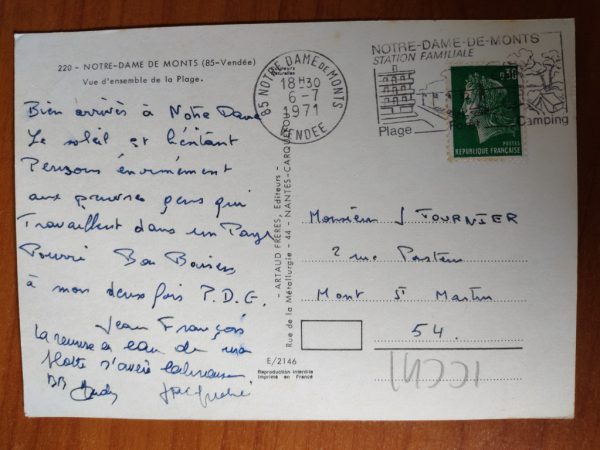 220 - NOTRE-DAME DE MONTS (85-Vendée)
Vue d'ensemble de la Plage.
Bien arrivés à Notre Dame
Le soleil et l'éntant
Pensons énormément
aux pauvres gens qui
Travaillent dans un Pays
Pourri Bon Baisers
à mon deux fois P.D.G.
Jean François
La remise à eau de ma
flotte s'avère
BB
E/2146
Reproduction interdite
Imprimé en France
ARTAUD FRÈRES, Editeurs -
Rue de la Métallurgie - 44 - NANTES-CARQUEFOU
85 NOTRE DAME DE MONTS
18H30
6-7
1971
VENDEE
NOTRE-DAME-DE-MONTS
STATION FAMILIALE
Plage
Camping
0,30
POSTES
REPUBLIQUE FRANÇAISE
Monsieur J FOURNIER
2 rue Pasteur
Mont St Martin
54.